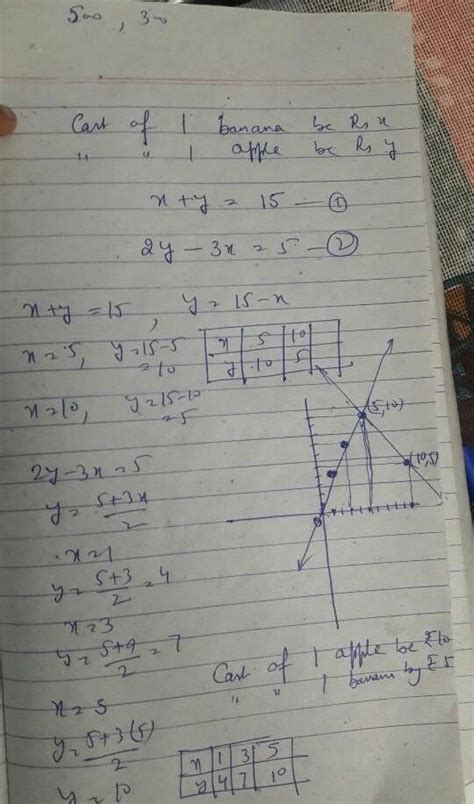 500, 300
Cast of 1 banana be Rs x
" " 1 apple be Rs y
x + y = 15 — ①
2y - 3x = 5 — ②
x + y = 15, y = 15 - x
x = 5, y = 15 - 5
= 10
x 5 10
y 10 5
x = 10, y = 15 - 10
= 5
(5,10)
(10,5)
2y - 3x = 5
y = 5 + 3x
2
x = 1
y = 5 + 3 = 4
2
x = 3
y = 5 + 9 = 7
2
Cast of 1 apple be ₹ 10
" " 1 banana by ₹ 5
x = 5
y = 5 + 3(5)
2
x 1 3 5
y 4 7 10
y = 10